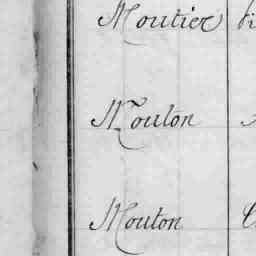 Moutier
Mouton
Mouton